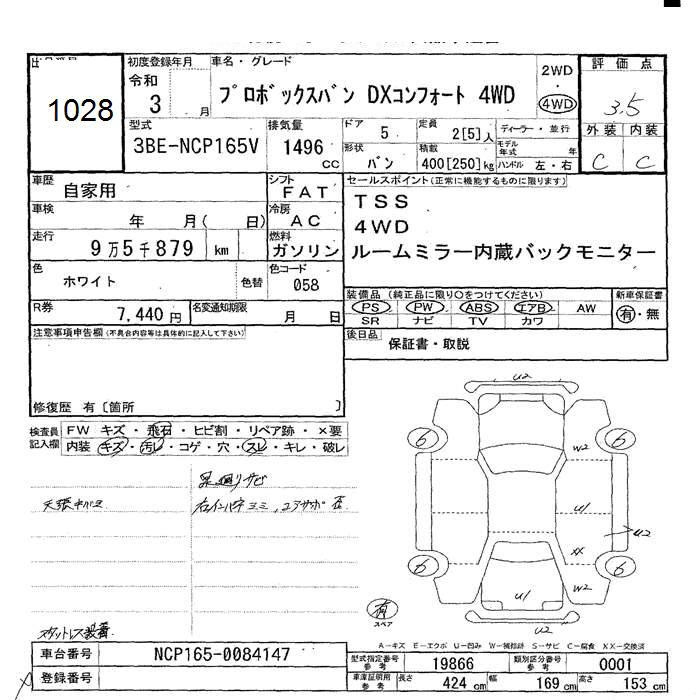 初度登録年月 車名・グレード 評価点
1028 令和 3 月 プロボックスバン DXコンフォート 4WD 2WD 4WD 3.5
型式 排気量 ドア 5 定員 2[5]人 ディーラー・並行 外装 内装
3BE-NCP165V 1496 cc 形状 バン 積載 400[250]kg モデル年式 年 ハンドル 左・右 C C
車歴 自家用 シフト FAT セールスポイント(正常に機能するものに限ります)
車検 年 月( 日) 冷房 AC TSS
4WD
走行 9万5千879 km 燃料 ガソリン ルームミラー内蔵バックモニター
色 ホワイト 色替 色コード 058
装備品(純正品に限り○をつけてください) 新車保証書
R券 7,440円 名変通知期限 月 日 PS PW ABS エアB AW 有・無
SR ナビ TV カワ
注意事項申告欄(不具合内容等は具体的に記入して下さい) 後日品 保証書・取説
修復歴 有〔箇所 〕
検査員記入欄 FW キズ・飛石・ヒビ割・リペア跡・×要
内装 キズ・汚レ・コゲ・穴・スレ・キレ・破レ
足廻りサビ
天張キバミ
スタットレス装着
U2
6 6
W2
U1
U2
XX
6 6
U1
U2
有
スペア
A-キズ E-エクボ U-凹み W-補修跡 S-サビ C-腐食 XX-交換済
車台番号 NCP165-0084147 型式指定番号 参考 19866 類別区分番号 参考 0001
登録番号 車庫証明用 参考 長さ 424 cm 幅 169 cm 高さ 153 cm